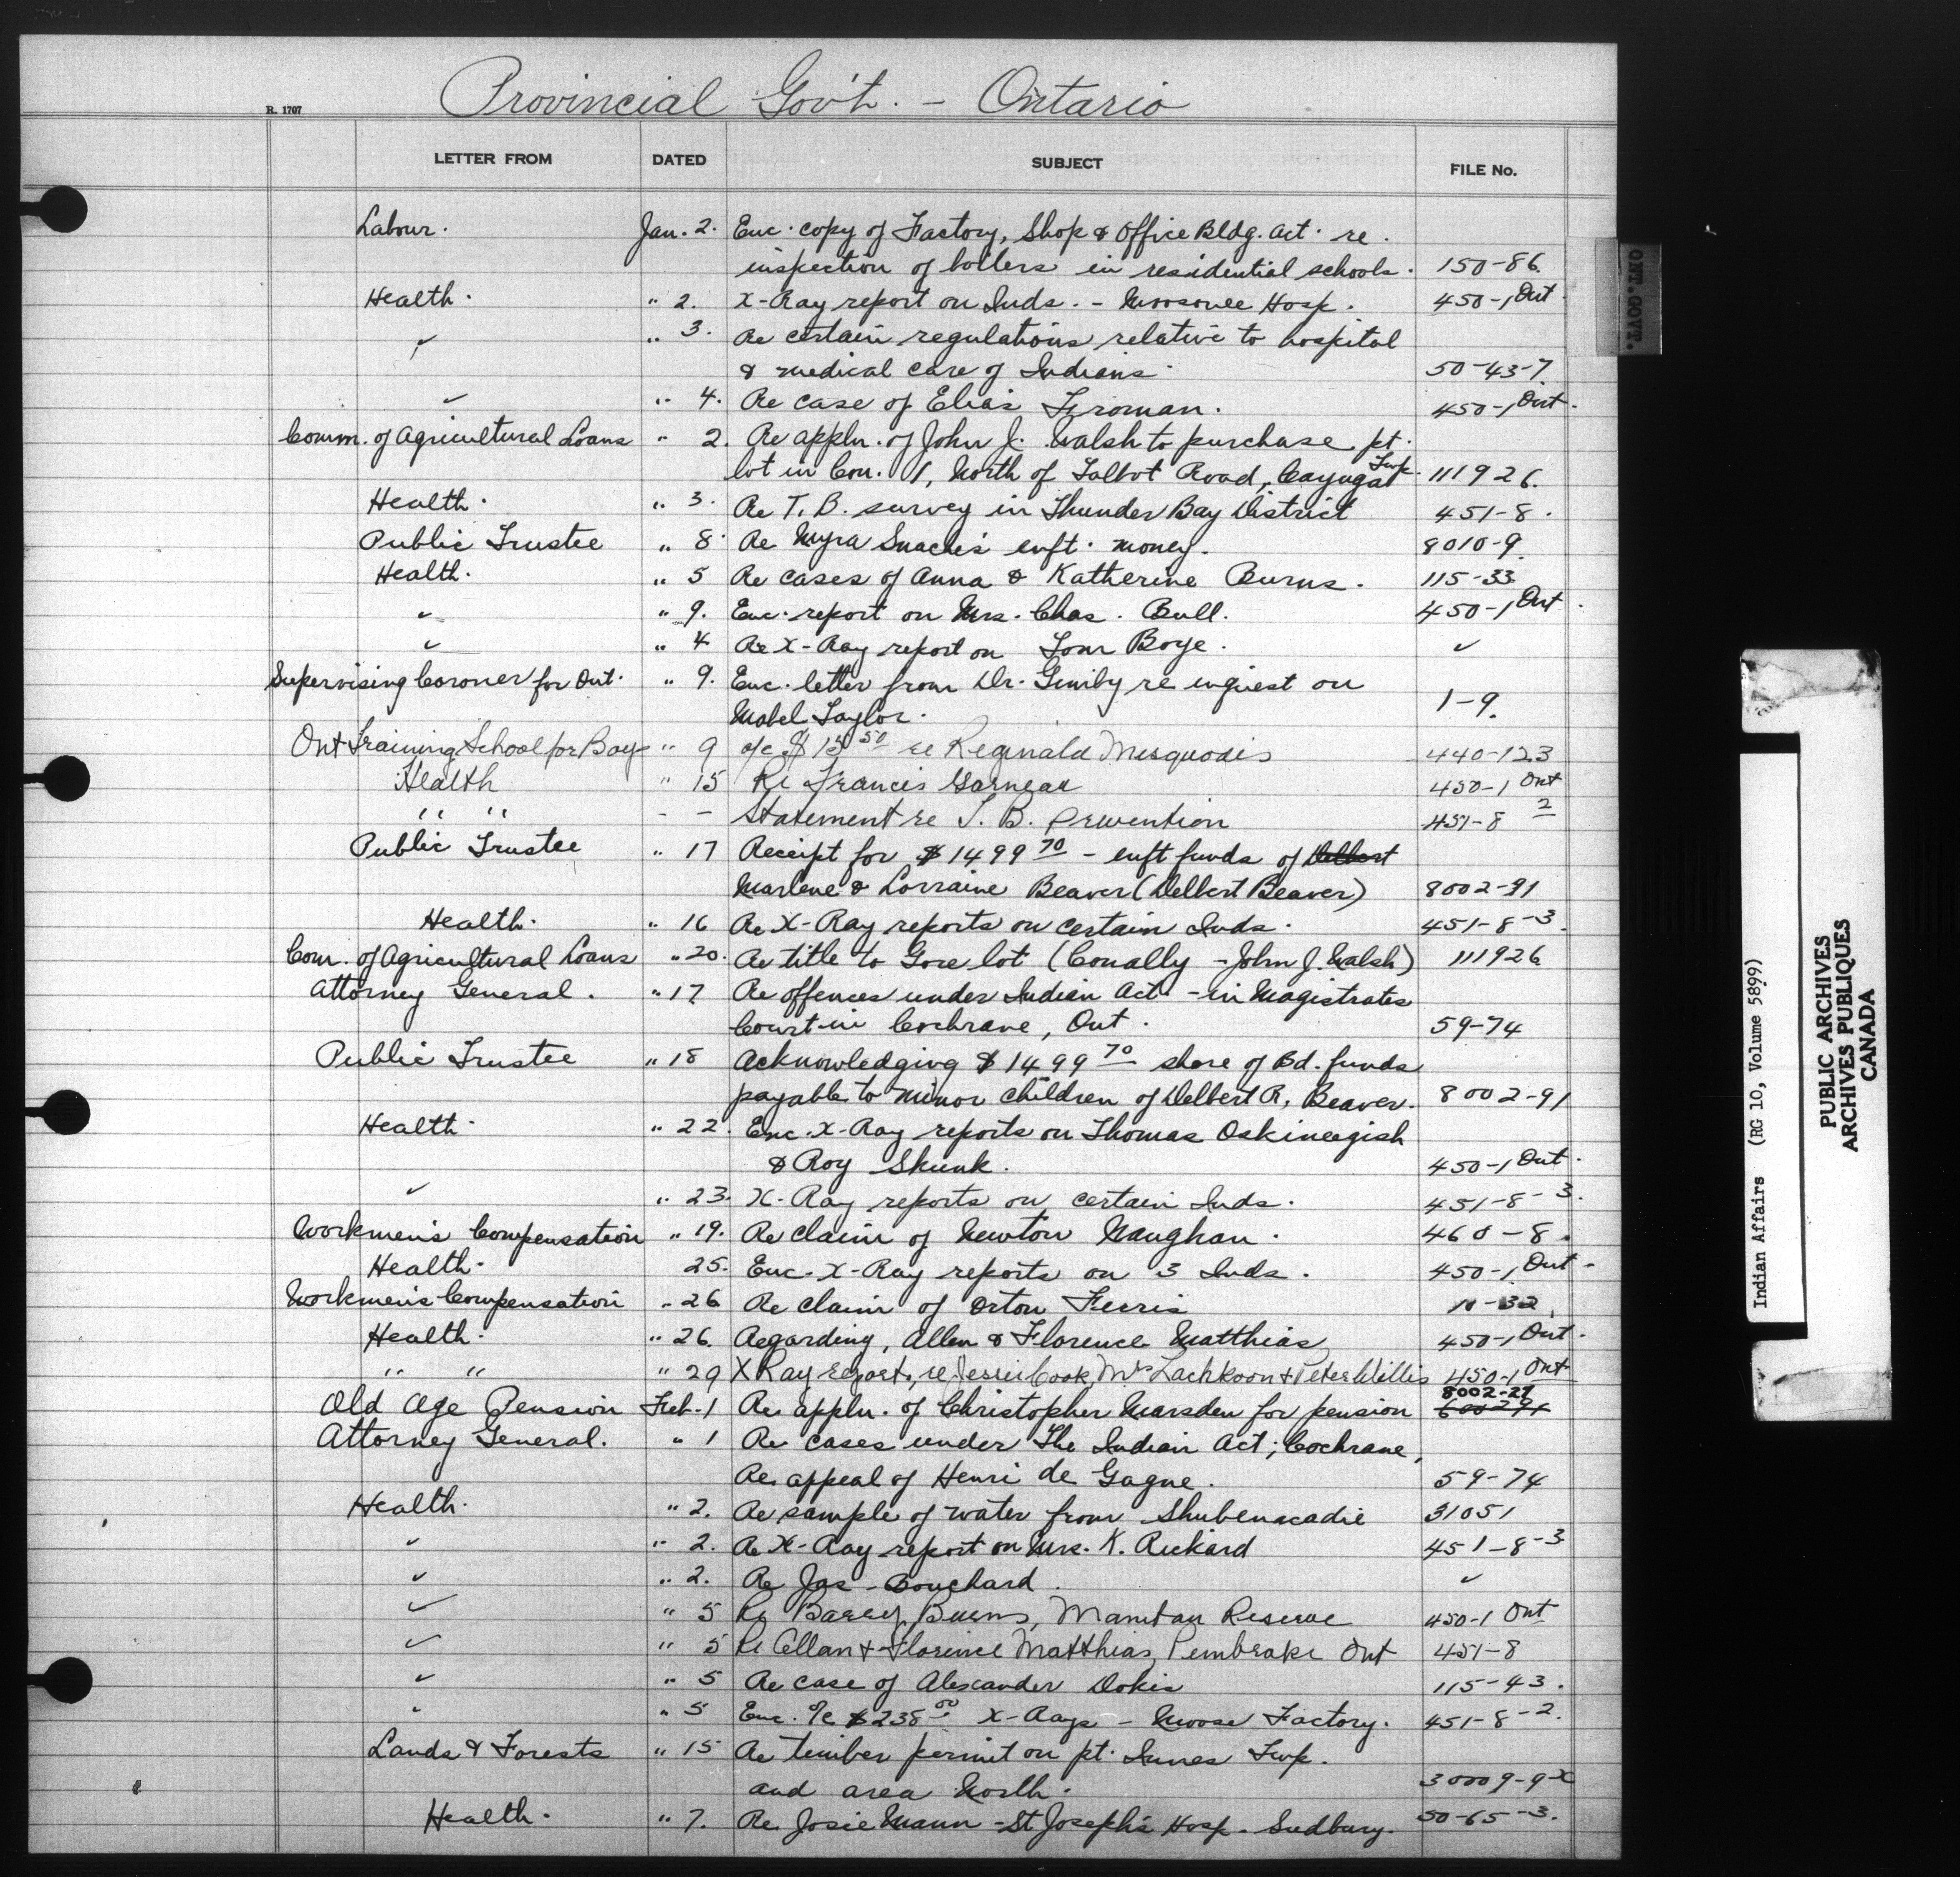 Provincial Gov't. - Ontario
R. 1707
LETTER FROM DATED SUBJECT FILE No.
Labour. Jan. 2. Enc. copy of Factory, Shop & Office Bldg. Act. re.
inspection of boilers in residential schools. 150-86.
Health. " 2. X-Ray report on Inds. - Moosonee Hosp. 450-1 Ont.
" " 3. Re certain regulations relative to hospital
& medical care of Indians. 50-43-7.
" " 4. Re case of Elias Froman. 450-1 Ont.
Comm. of Agricultural Loans " 2. Re appln. of John J. Walsh to purchase pt.
lot in Con. 1, North of Talbot Road, Cayuga Twp. 111926.
Health. " 3. Re T. B. survey in Thunder Bay District 451-8.
Public Trustee " 8. Re Myra Snache's enft. money. 8010-9.
Health. " 5 Re cases of Anna & Katherine Burns. 115-33
" " 9. Enc. report on Mrs. Chas. Bull. 450-1 Ont.
" " 4 Re X-Ray report on Tom Boye. "
Supervising Coroner for Ont. " 9. Enc. letter from Dr. re inquest on
Mabel Taylor. 1-9.
Ont Training School for Boys " 9 o/c $15 50 re Reginald Misquadis 440-123
Health " 15 Re Francis Garneau 450-1 Ont
" " - - Statement re T. B. prevention 451-8 2
Public Trustee " 17 Receipt for $1499 70 - enft funds of Delbert
Marlene & Lorraine Beaver (Delbert Beaver) 8002-91
Health. " 16 Re X-Ray reports on certain Inds. 451-8-3.
Com. of Agricultural Loans " 20. Re title to Gore lot (Conally - John J. Walsh) 111926
Attorney General. " 17 Re offences under Indian Act - in Magistrates
Court in Cochrane, Ont. 59-74
Public Trustee " 18 Acknowledging $1499 70 share of Bd. funds
payable to minor children of Delbert R. Beaver. 8002-91
Health. " 22. Enc. X-Ray reports on Thomas Oskineegish
& Roy Skunk. 450-1 Ont.
" " 23. X-Ray reports on certain Inds. 451-8-3.
Workmen's Compensation " 19. Re claim of Newton Maughan. 460-8.
Health. 25. Enc. X-Ray reports on 3 Inds. 450-1 Ont.
Workmen's Compensation " 26 Re claim of Orton Ferris 10-32.
Health. " 26. Regarding, Allen & Florence Matthias 450-1 Ont.
" " " 29 X Ray reports, re Jessie Cook, Mrs Lachkoon & Peter Willis 450-1 Ont
8002-27
Old Age Pension Feb. 1 Re appln. of Christopher Marsden for pension
Attorney General. " 1 Re cases under The Indian Act; Cochrane,
Re appeal of Henri de Gagne. 59-74
Health. " 2. Re sample of water from Shubenacadie 31051
" " 2. Re X-Ray report on Mrs. K. Rickard 451-8-3
" " 2. Re Jas - Bouchard. "
" " 5 Re Barry Burns, Manitou Reserve 450-1 Ont
" " 5 Re Allan & Florence Matthias, Pembroke Ont 451-8
" " 5 Re case of Alexander Dokis 115-43.
" " 5 Enc. o/c $238 00 X-Rays - Moose Factory. 451-8-2.
Lands & Forests " 15 Re timber permit on pt. Innes Twp.
and area North. 30009-9 x
Health. " 7. Re Josie Mann - St Joseph's Hosp. Sudbury. 50-65-3.
ONT. GOVT.
Indian Affairs (RG 10, Volume 5899)
PUBLIC ARCHIVES
ARCHIVES PUBLIQUES
CANADA